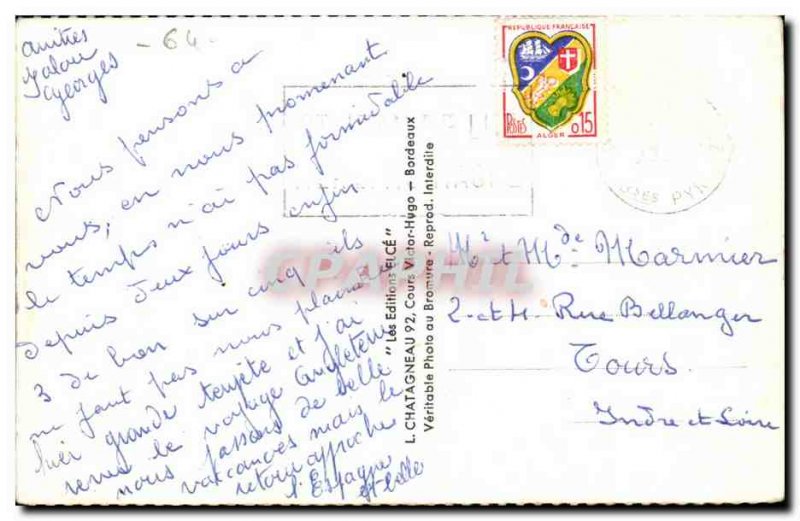 amitiés
Georges
- 64 -
Nous pensons a
vous, en nous promenant
le temps n'ai pas formidable
depuis deux jours enfin
3 de bon sur cinq ils
ne faut pas nous plaindre
hier grande tempête et j'ai
revue le voyage Angleterre
nous passons de belle
vacances mais le
retour approche
l'Espagne
et belle
REPUBLIQUE FRANÇAISE
POSTES
0,15
ALGER
"Les Editions ELCÉ"
L. CHATAGNEAU 92, Cours Victor-Hugo — Bordeaux
Véritable Photo au Bromure - Reprod. Interdite
CPAPHIL
Mr et Mde Marmier
2 et 4 Rue Bellanger
Tours
Indre et Loire